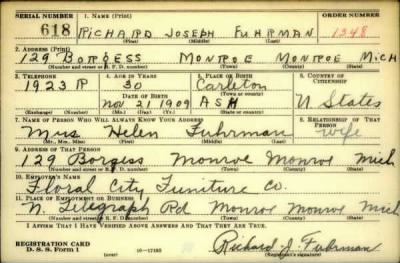 SERIAL NUMBER 1. NAME (Print) ORDER NUMBER
618 RICHARD JOSEPH FUHRMAN 1348
(First) (Middle) (Last)
2. ADDRESS (Print)
129 BORGESS MONROE MONROE MICH
(Number and street or R. F. D. number) (Town) (County) (State)
3. TELEPHONE 4. AGE IN YEARS 5. PLACE OF BIRTH 6. COUNTRY OF CITIZENSHIP
1923 R 30 Carleton
DATE OF BIRTH (Town or county)
Nov 21 1909 ASH U States
(Exchange) (Number) (Mo.) (Day) (Yr.) (State or country)
7. NAME OF PERSON WHO WILL ALWAYS KNOW YOUR ADDRESS 8. RELATIONSHIP OF THAT PERSON
Mrs Helen Fuhrman wife
(Mr., Mrs., Miss) (First) (Middle) (Last)
9. ADDRESS OF THAT PERSON
129 Borgess Monroe Monroe Mich
(Number and street or R. F. D. number) (Town) (County) (State)
10. EMPLOYER'S NAME
Floral City Funiture Co.
11. PLACE OF EMPLOYMENT OR BUSINESS
N. Telegraph Rd Monroe Monroe Mich
(Number and street or R. F. D. number) (Town) (County) (State)
I AFFIRM THAT I HAVE VERIFIED ABOVE ANSWERS AND THAT THEY ARE TRUE.
REGISTRATION CARD
D. S. S. Form 1 (over) 16—17105 Richard J. Fuhrman
(Registrant's signature)